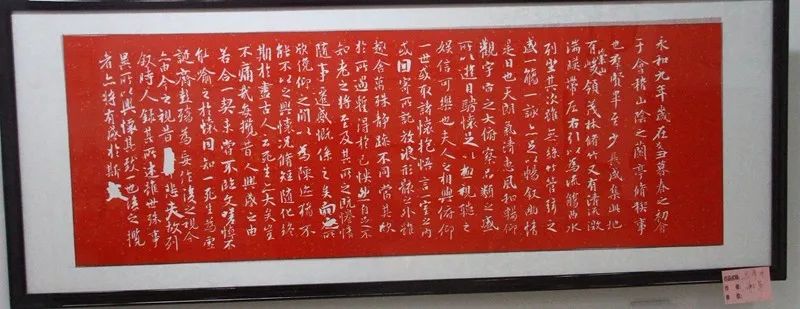 永和九年歲在癸丑暮春之初會
于會稽山陰之蘭亭脩稧事
也群賢畢至少長咸集此地
有峻領茂林脩竹又有清流激
湍暎帶左右引以為流觴曲水
列坐其次雖無絲竹管弦之
盛一觴一詠亦足以暢敘幽情
是日也天朗氣清惠風和暢仰
觀宇宙之大俯察品類之盛
所以遊目騁懷足以極視聽之
娛信可樂也夫人之相與俯仰
一世或取諸懷抱悟言一室之內
或因寄所託放浪形骸之外雖
趣舍萬殊靜躁不同當其欣
於所遇蹔得於己怏然自足不
知老之將至及其所之既惓情
隨事遷感慨係之矣向之所
欣俛仰之間以為陳迹猶不
能不以之興懷況脩短隨化終
期於盡古人云死生亦大矣豈
不痛哉每攬昔人興感之由
若合一契未嘗不臨文嗟悼不
能喻之於懷固知一死生為虛
誕齊彭殤為妄作後之視今
亦由今之視昔悲夫故列
敘時人錄其所述雖世殊事
異所以興懷其致一也後之攬
者亦將有感於斯文